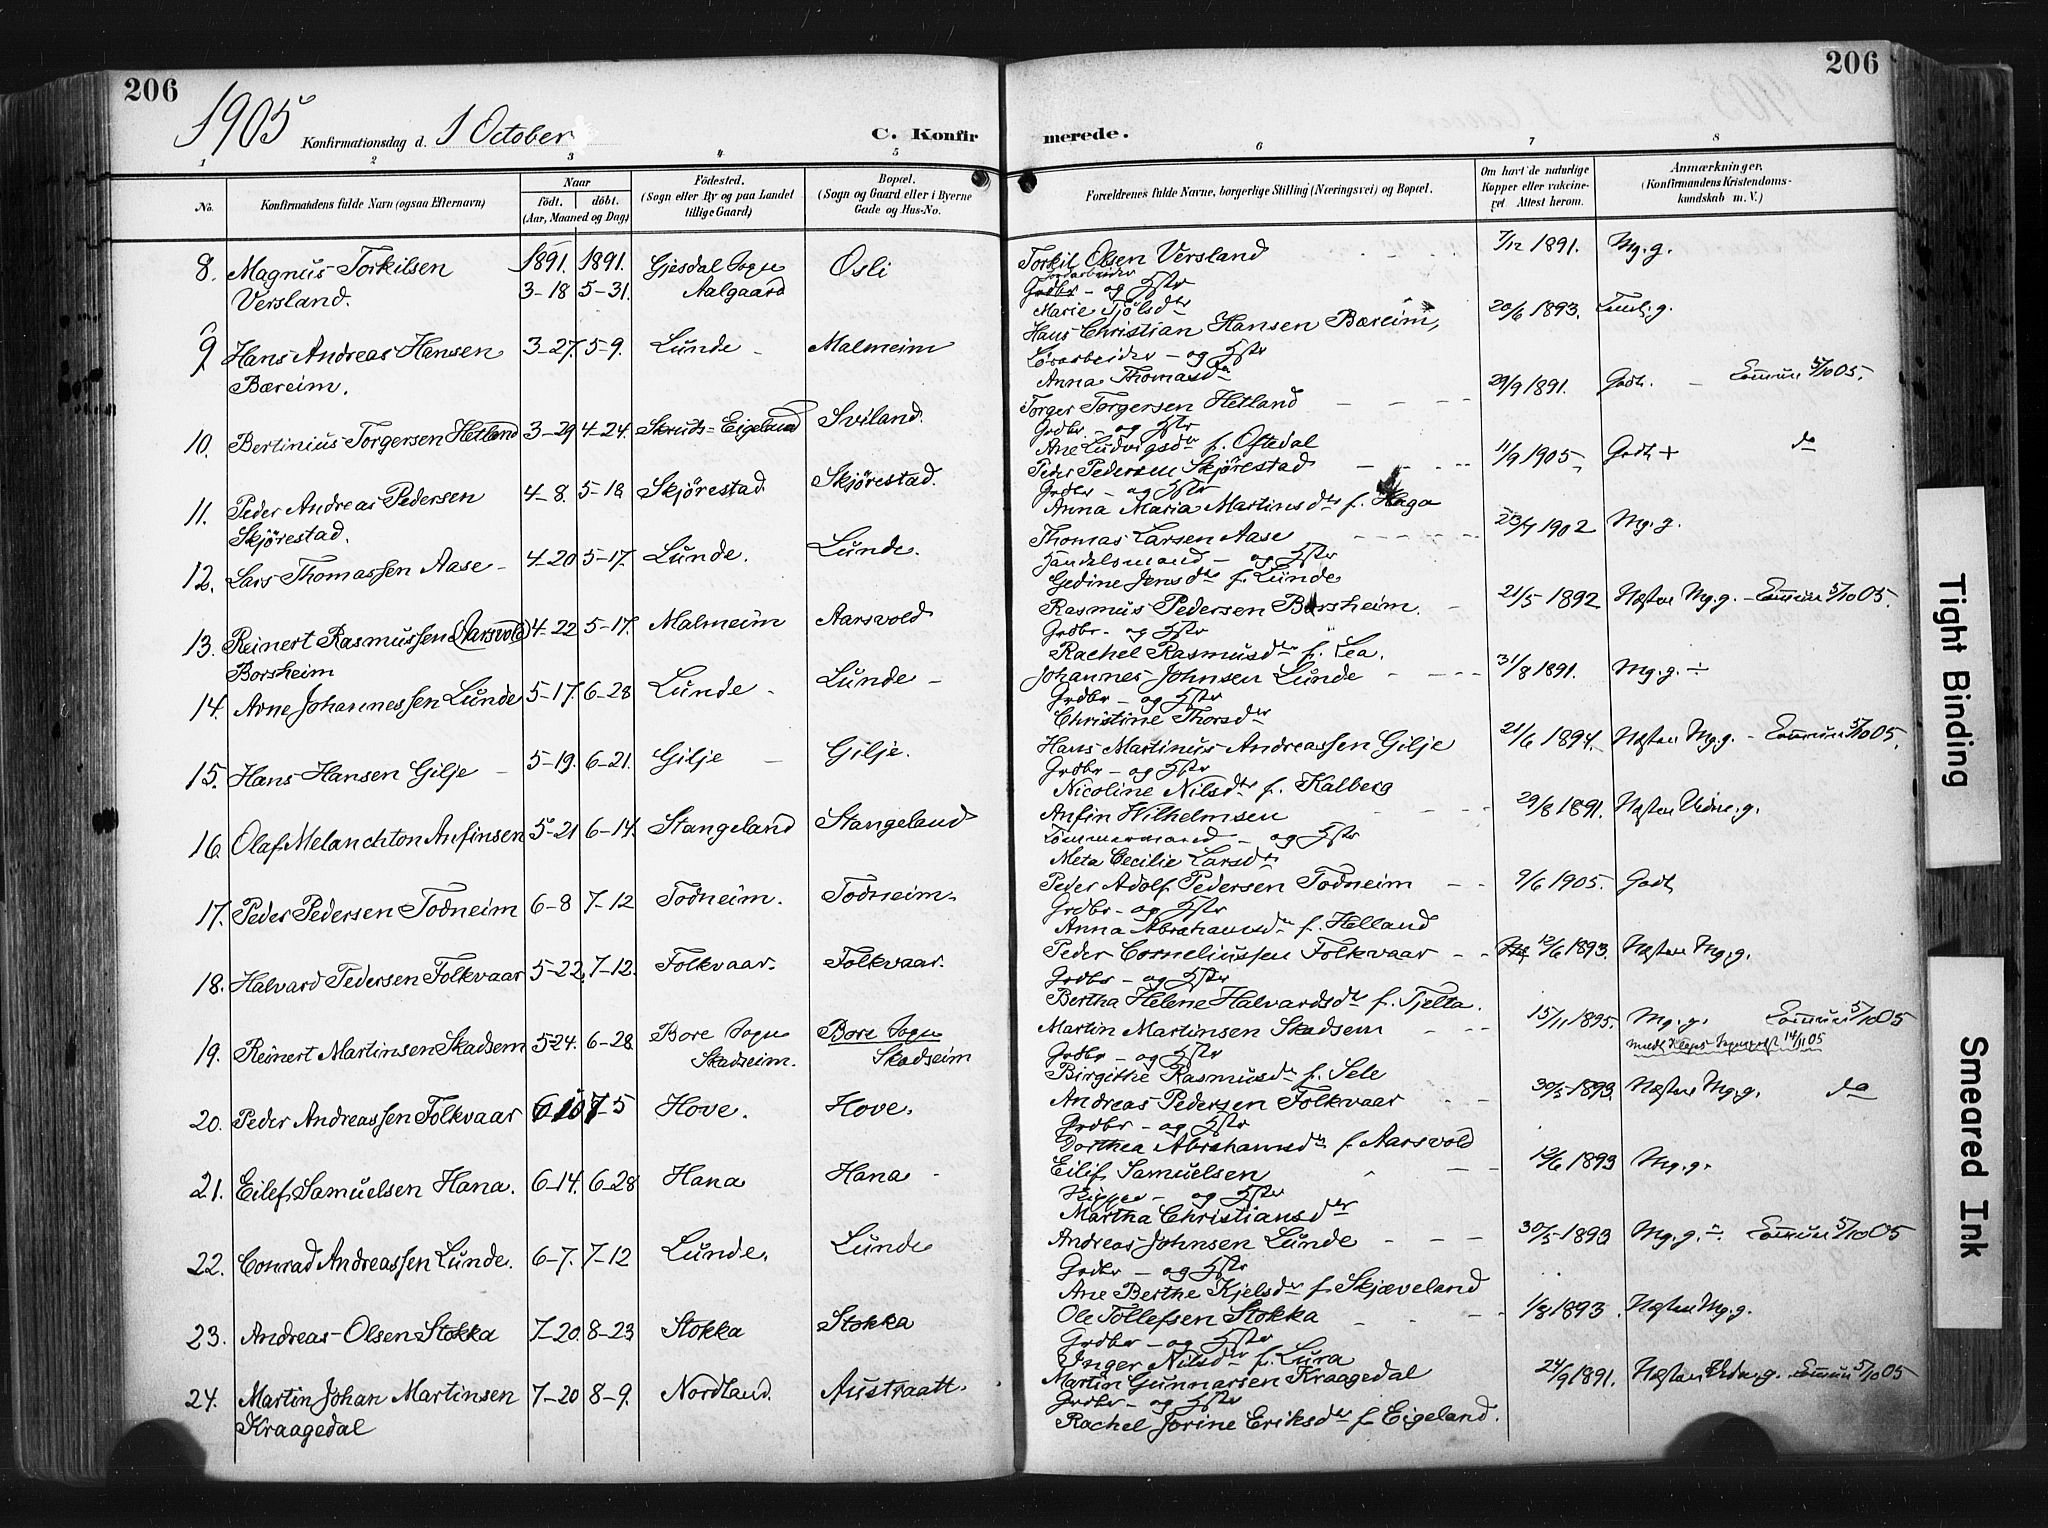 206
206
1905
Konfirmationsdag d. 1 October
C. Konfirmerede.
1 2 3 4 5 6 7 8
No.
Konfirmandens fulde Navn (ogsaa Efternavn)
Naar
født. døbt.
(Aar, Maaned og Dag)
Fødested.
(Sogn eller By og paa Landet
tillige Gaard)
Bopæl.
(Sogn og Gaard eller i Byerne
Gade og Hus-No.
Forældrenes fulde Navne, borgerlige Stilling (Næringsvei) og Bopæl.
Om havt de naturlige
Kopper eller vakcine-
ret. Attest herom.
Anmærkninger.
(Konfirmandens Kristendoms-
kundskab m. V.)
8. Magnus Torkilsen 1891. 1891. Gjesdal Sogn Osli Torkil Olsen Versland 7/12 1891. Mg. g.
Versland. 3-18 5-31. Aalgaard Grdbr - og Hstr
Marie Tjølsdtr
9 Hans Andreas Hansen 3-27. 5-9. Lunde - Malmeim Hans Christian Hansen Bæreim, 20/6 1893. Temlig g.
Bæreim. - og Hstr
Anna Thomasdtr
10. Bertinius Torgersen Hetland 3-29 4-24. Skruds-Eigeland Sviland. Torger Torgersen Hetland 29/9 1891. Godt. - Commun 5/10 05.
Grdbr - og Hstr
Ane Ludvigsdtr f. Oftedal
11. Peder Andreas Pedersen 4-8. 5-18 Skjørestad Skjørestad. Peder Pedersen Skjørestad 11/9 1905 Godt + do
Skjørestad. Grdbr - og Hstr
Anna Maria Martinsdtr f. Haga
12. Lars Thomassen Aase - 4-20 5-17. Lunde. Lunde. Thomas Larsen Aase 23/7 1902 Mg. g.
Handelsmand - og Hstr
Gedine Jensdtr f. Lunde
13. Reinert Rasmussen (Aarsvold) 4-22 5-17. Malmeim Aarsvold Rasmus Pedersen Borsheim. 21/5 1892 Næsten Mg. g. - Commun 5/10 05.
Borsheim Grdbr - og Hstr
Rachel Rasmusdtr f. Lea.
14. Arne Johannessen Lunde 5-17. 6-28 Lunde - Lunde - Johannes Johnsen Lunde 31/8 1891. Mg. g. ÷
Grdbr - og Hstr
Christine Thorsdtr
15. Hans Hansen Gilje - 5-19. 6-21. Gilje - Gilje. Hans Martinus Andreassen Gilje 21/6 1894. Næsten Mg. g. - Commun 5/10 05.
Grdbr - og Hstr
Nicoline Nilsdtr f. Kalberg
16. Olaf Melanchton Anfinsen 5-21 6-14. Stangeland Stangeland Anfin Wilhelmsen 29/8 1891. Næsten Udm. g.
Tømmermand - og Hstr
Meta Cecilie Larsdtr
17. Peder Pedersen Todneim 6-8 7-12 Todneim. Todneim. Peder Adolf Pedersen Todneim 9/6 1905. Godt
Grdbr - og Hstr
Anna Abrahamsdtr f. Helland
18. Halvard Pedersen Folkvaar 5-22. 7-12. Folkvaar. Folkvaar. Peder Corneliussen Folkvaar 12/6 1893. Næsten Mg. g.
Grdbr - og Hstr
Bertha Helene Halvardsdtr f. Tjelta.
19. Reinert Martinsen Skadsem 5-24. 6-28. Bore Sogn Bore Sogn Martin Martinsen Skadsem 15/11 1895. Mg. g. Commun 5/10 05
Skadseim. Skadseim Grdbr - og Hstr 14/11 05
Birgithe Rasmusdtr f. Sele
20. Peder Andreassen Folkvaar 6-10 7-5 Hove. Hove. Andreas Pedersen Folkvaar 30/5 1893. Næsten Mg. g. do
Grdbr - og Hstr
Dorthea Abrahamsdtr f. Aarsvold
21. Eilef Samuelsen Hana. 6-14. 6-28 Hana Hana - Eilif Samuelsen 12/6 1893 Mg. g.
- og Hstr
Martha Christiansdtr
22. Conrad Andreassen Lunde. 6-7. 7-12 Lunde. Lunde Andreas Johnsen Lunde 30/5 1893 Mg. g. ÷ Commun 5/10 05
Grdbr - og Hstr
Ane Berthe Kjelsdtr f. Skjæveland
23. Andreas Olsen Stokka 7-20. 8-23 Stokka Stokka Ole Tollefsen Stokka 1/8 1893. Næsten Mg. g.
Grdbr - og Hstr
Inger Nilsdtr f. Lura
24. Martin Johan Martinsen 7-20 8-9. Nordland. Austraatt. Martin Gunnarsen Kraagedal 24/9 1891. Næsten Udm. g. Commun 5/10 05
Kraagedal Grdbr - og Hstr
Rachel Jorine Eriksdtr f. Eigeland.
Tight Binding
Smeared Ink